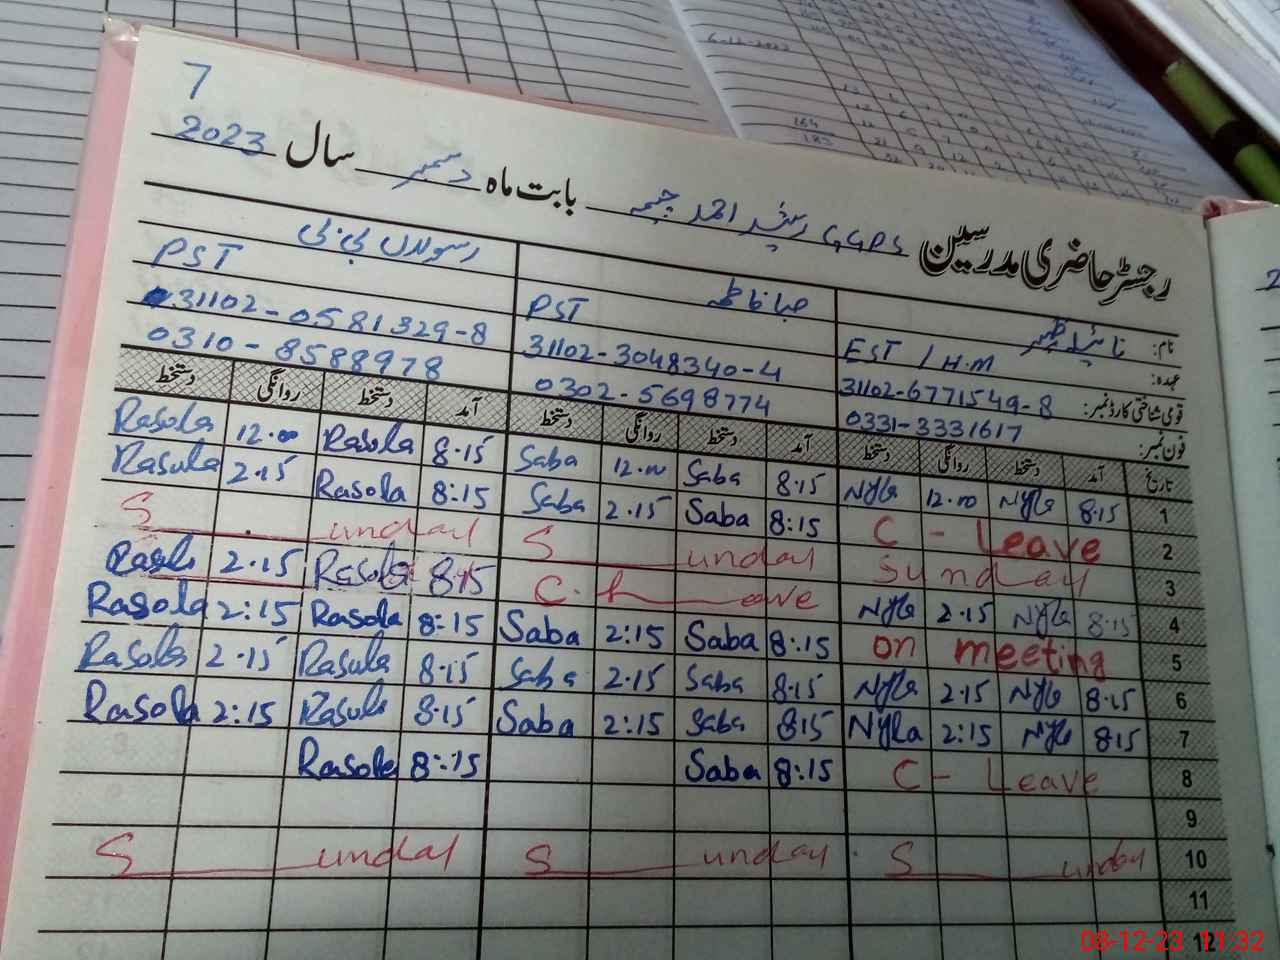 7
رجسٹر حاضری مدرسین GGPS رشید احمد چیمہ بابت ماہ دسمبر سال 2023
نام: نائیلہ صبا فاطمہ رسولاں بی بی
عہدہ: EST / H.M PST PST
قومی شناختی کارڈ نمبر: 31102-6771549-8 31102-3048340-4 31102-0581329-8
فون نمبر: 0331-3331617 0302-5698774 0310-8588978
تاریخ آمد دستخط روانگی دستخط آمد دستخط روانگی دستخط آمد دستخط روانگی دستخط
1 8.15 Nyla 12.00 Nyla 8.15 Saba 12.00 Saba 8.15 Rasola 12.00 Rasola
2 C - Leave 8:15 Saba 2.15 Saba 8:15 Rasola 2.15 Rasula
3 Sunday Sunday Sunday
4 8.15 Nyla 2.15 Nyla C. Leave 8.15 Rasola 2.15
5 on meeting 8:15 Saba 2:15 Saba 8:15 Rasola 2:15 Rasola
6 8.15 Nyla 2.15 Nyla 8.15 Saba 2.15 Saba 8.15 Rasula 2.15 Rasola
7 8.15 Nyla 2:15 Nyla 8.15 Saba 2:15 Saba 8.15 Rasula 2:15 Rasola
8 C - Leave 8:15 Saba 8:15 Rasola
9
10 Sunday Sunday Sunday
11
12
6-12-2023
164
183
08-12-23 11:32